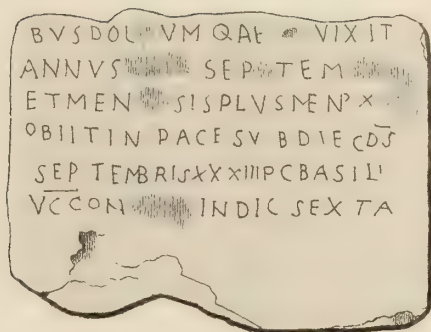 BVSDOL VM QAE VIXIT
ANNVS SEP TEM
ETMEN SISPLVSMEN' X
OBIITIN PACESV BDIECDS
SEP TEMBRISXXXIIIPCBASILI'
VCCON INDIC SEXTA